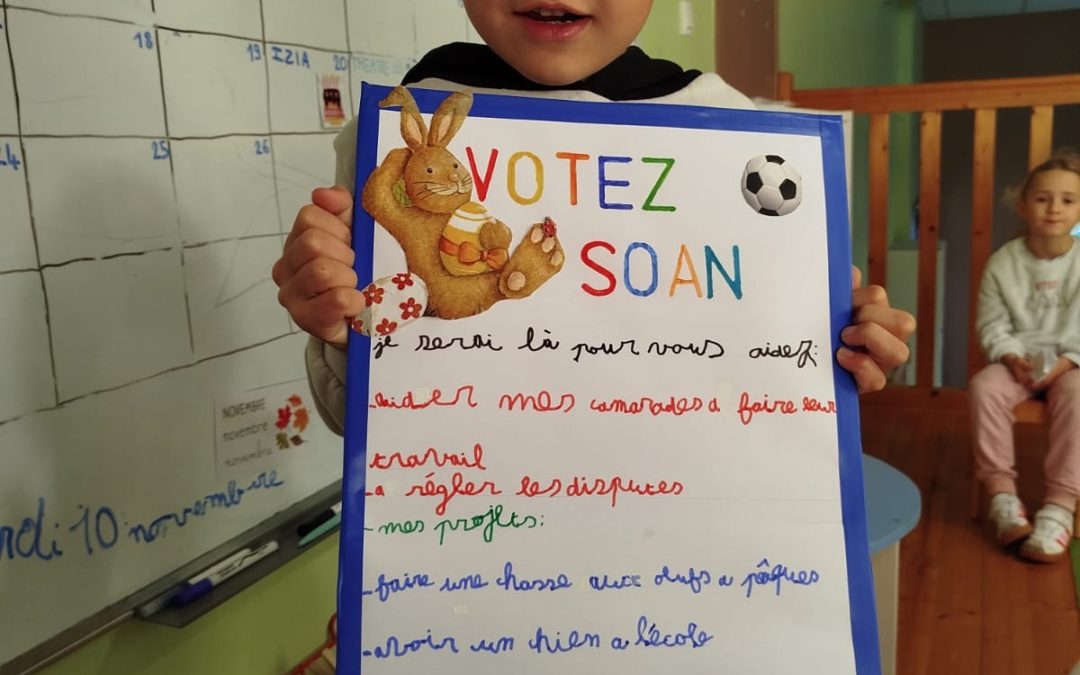 18
19
IZIA
20
24
25
26
NOVEMBRE
novembre
novembre
rdi 10 novembre
VOTEZ
SOAN
je serai là pour vous aidez:
-aider mes camarades a faire leur
travail
-a régler les disputes
-mes projets:
-faire une chasse aux œufs a pâques
-avoir un chien a l'école